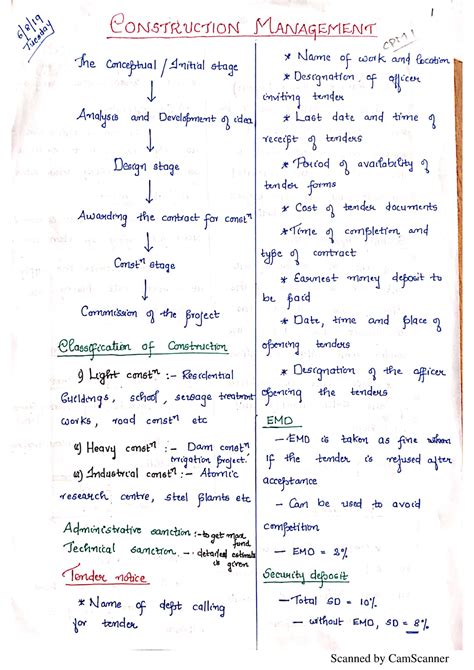 6/8/19
Tuesday
CONSTRUCTION MANAGEMENT
1
CPM 1
The Conceptual / Initial stage
Analysis and Development of idea
Design stage
Awarding the contract for constn
Constn stage
Commission of the project
Classification of Construction
i) Light constn :- Residential
buildings, school, sewage treatment
works, road constn etc
ii) Heavy constn :- Dam constn
irrigation project.
iii) Industrial constn :- Atomic
research centre, steel plants etc
Administrative sanction :- to get max
fund
Technical sanction. - detailed estimate
is given
Tender notice
* Name of dept calling
for tender
* Name of work and location
* Designation of officer
inviting tender
* Last date and time of
receipt of tenders
* Period of availability of
tender forms
* Cost of tender documents
* Time of completion and
type of contract
* Earnest money deposit to
be paid
* Date, time and place of
opening tenders
* Designation of the officer
opening the tenders
EMD
- EMD is taken as fine when
if the tender is refused after
acceptance
- Can be used to avoid
competition
- EMD = 2%
Security deposit
- Total SD = 10%
- without EMD, SD = 8%
Scanned by CamScanner